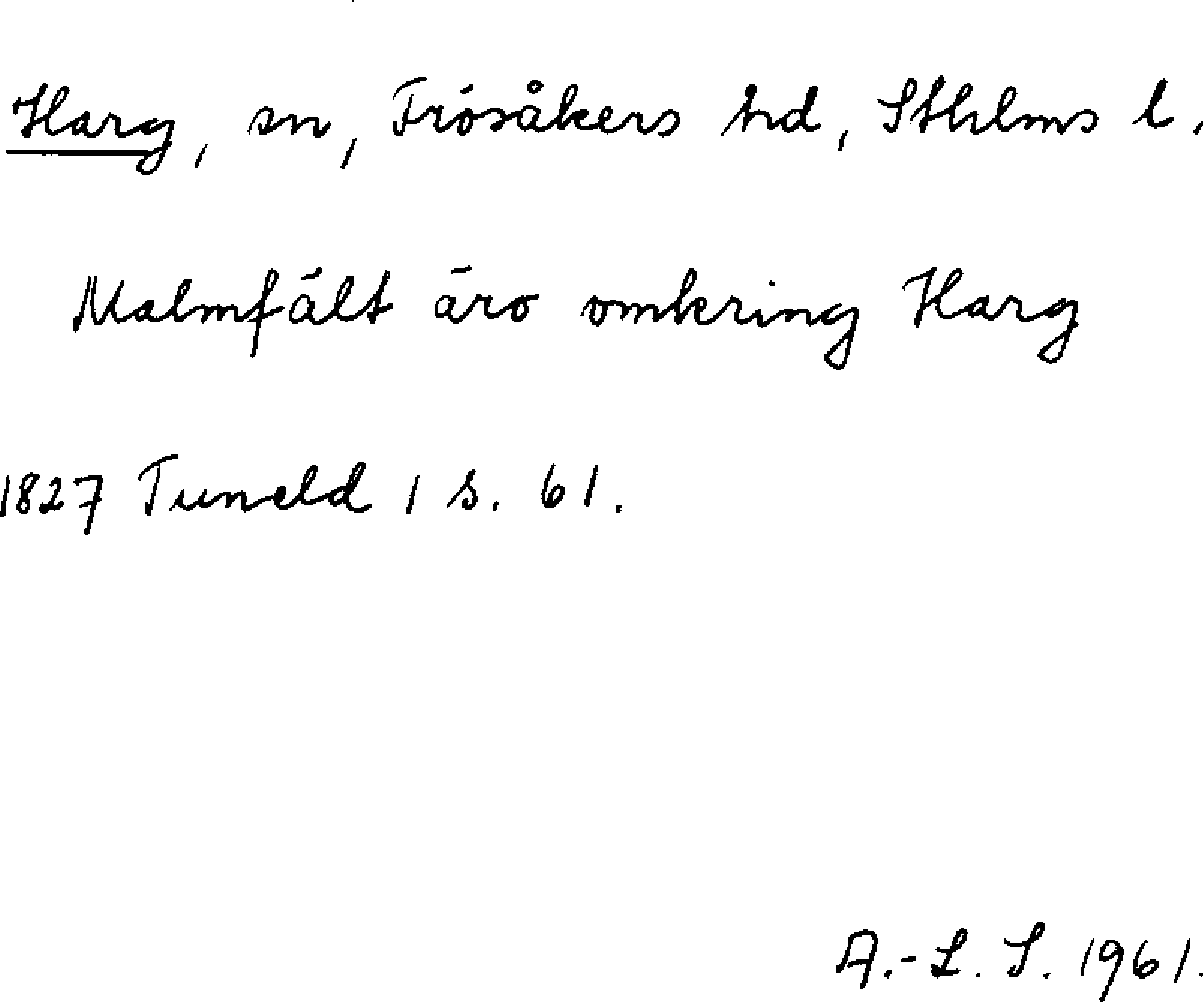 Harg, sn, Frösåkers hd, Sthlms l.
Malmfält äro omkring Harg
1827 Tuneld 1 s. 61.
A.-L. S. 1961.